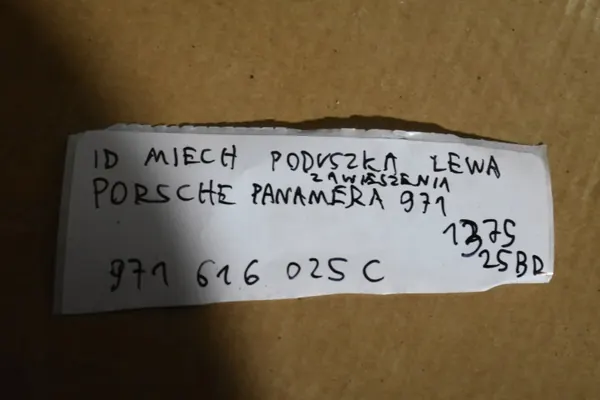 ID MIECH PODUSZKA LEWA
ZAWIESZENIA
PORSCHE PANAMERA 971
1375
25BD
971 616 025 C